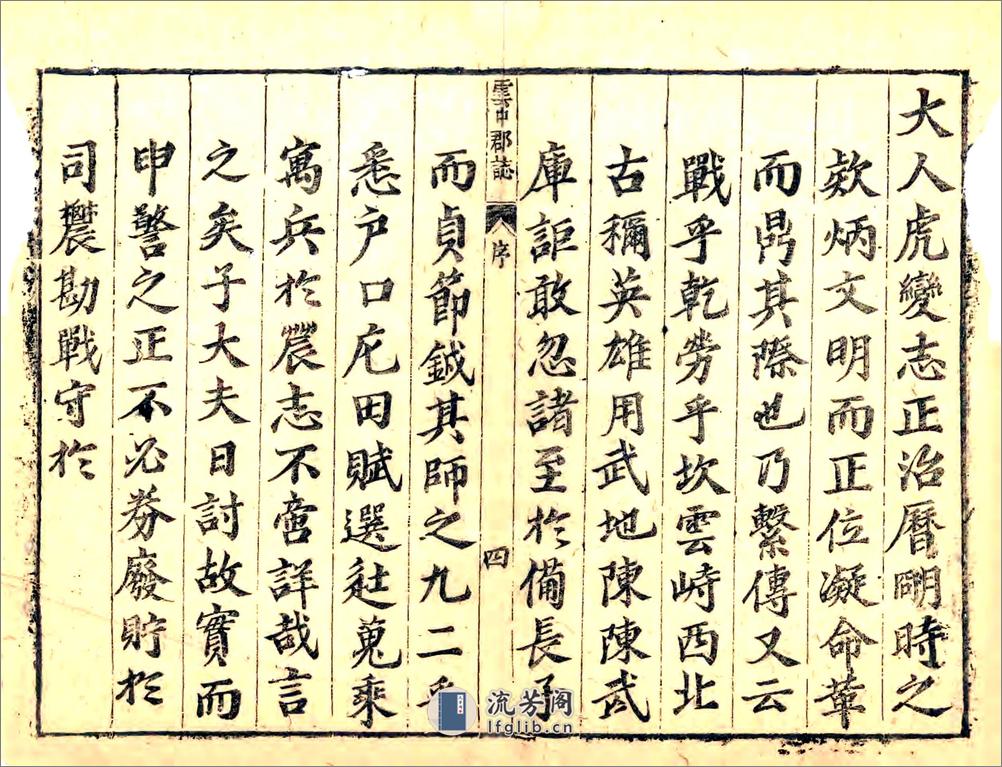 大人虎變志正治曆朙時之
欵炳文明而正位凝命革
而鼎其際也乃繫傳又云
戰乎乾勞乎坎雲峙西北
古稱英雄用武地陳陳武
庫詎敢忽諸至於備長子
雲中郡誌
序
四
而貞節鉞其師之九二乎
悉户口庀田賦選徒蒐乘
寓兵於農志不啻詳哉言
之矣子大夫日討故實而
申警之正不必券廢貯於
司農勘戰守於
流芳阁
lfglib.cn